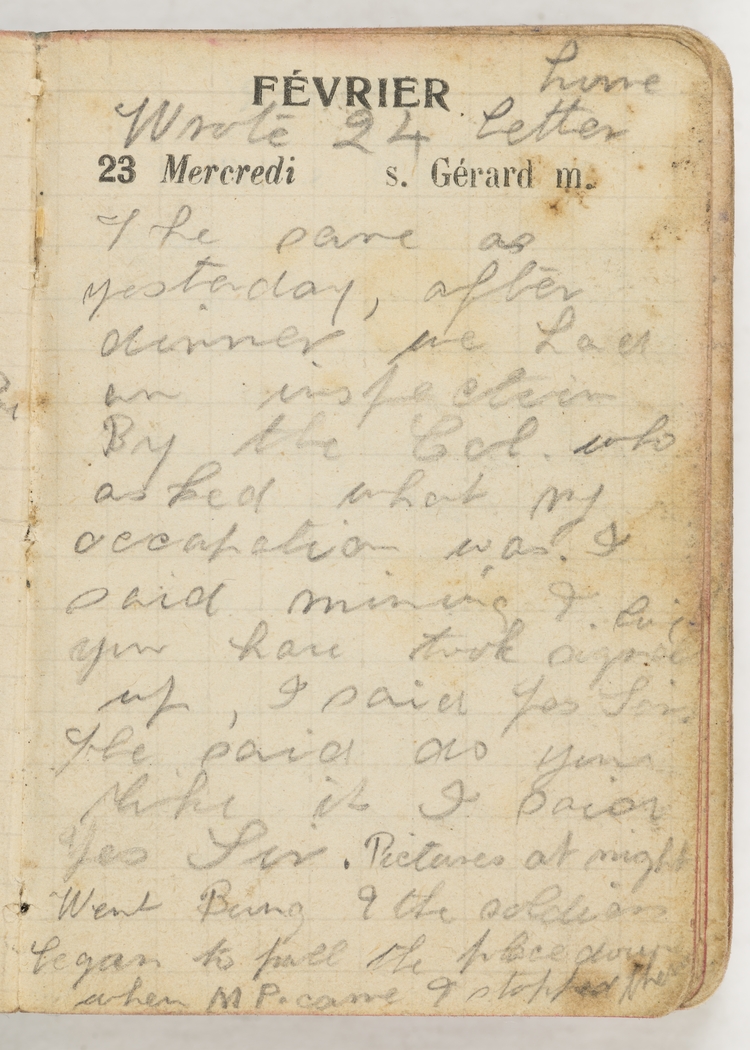 FÉVRIER home
Wrote 24 letter
23 Mercredi s. Gérard m.
The same as
yesterday, after
dinner we had
an inspection
By the Col. who
asked what my
occapation was. I
said mining &
you have took
up, I said Yes Sir
He said do you
like it I said
Yes Sir. Pictures at night
Went Bung & the soldiers
began to pull the place down
when M P. came & stopped them